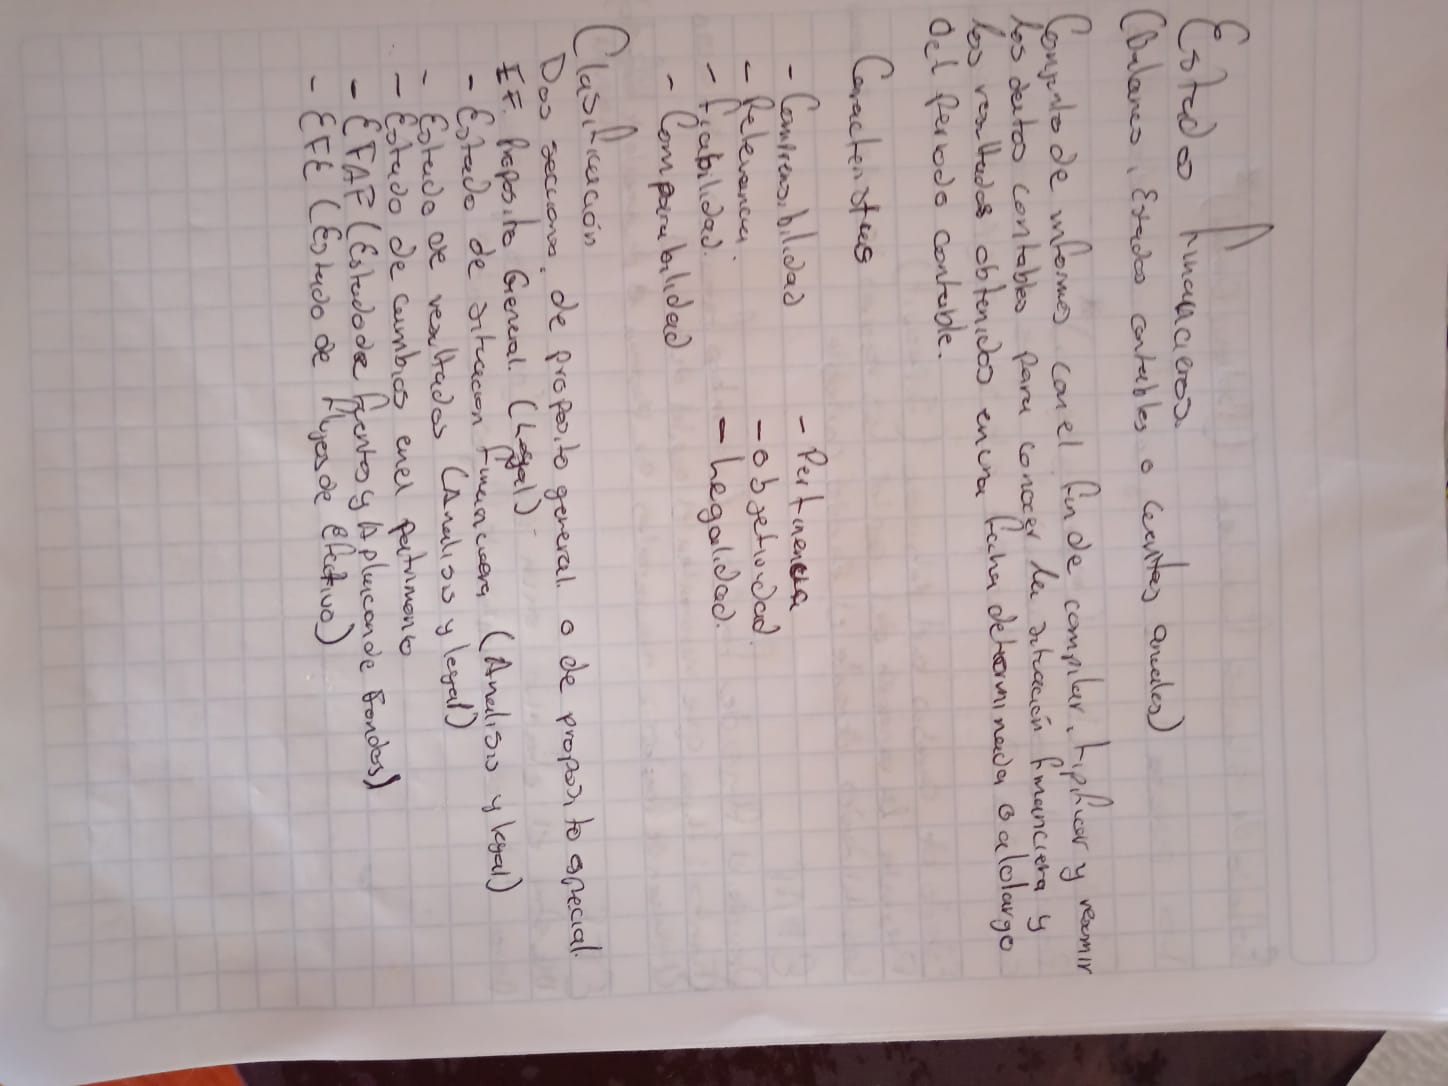 Estados financieros.
(Balances, Estados contables o cuentas anuales)
Conjunto de informes con el fin de compilar, tipificar y resumir
los datos contables para conocer la situación financiera y
los resultados obtenidos en una fecha determinada o a lo largo
del periodo contable.
Caracteristicas
- Comprensibilidad - Pertinencia
- Relevancia - Objetividad
- fiabilidad. - Legalidad.
- Comparabilidad
Clasificación
Dos secciones, de proposito general o de proposito especial.
E.F. Proposito General. (Legal)
- Estado de situacion financiera (Analisis y legal)
- Estado de resultados (Analisis y legal)
- Estado de cambios en el patrimonio
- EFAF (Estado de fuentos y Aplicacion de Fondos)
- EFE (Estado de flujos de Efectivo)